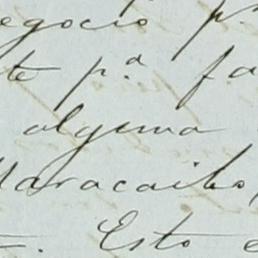 egocio pª
te pª fa
algema
Maracaibo,
. Esto e